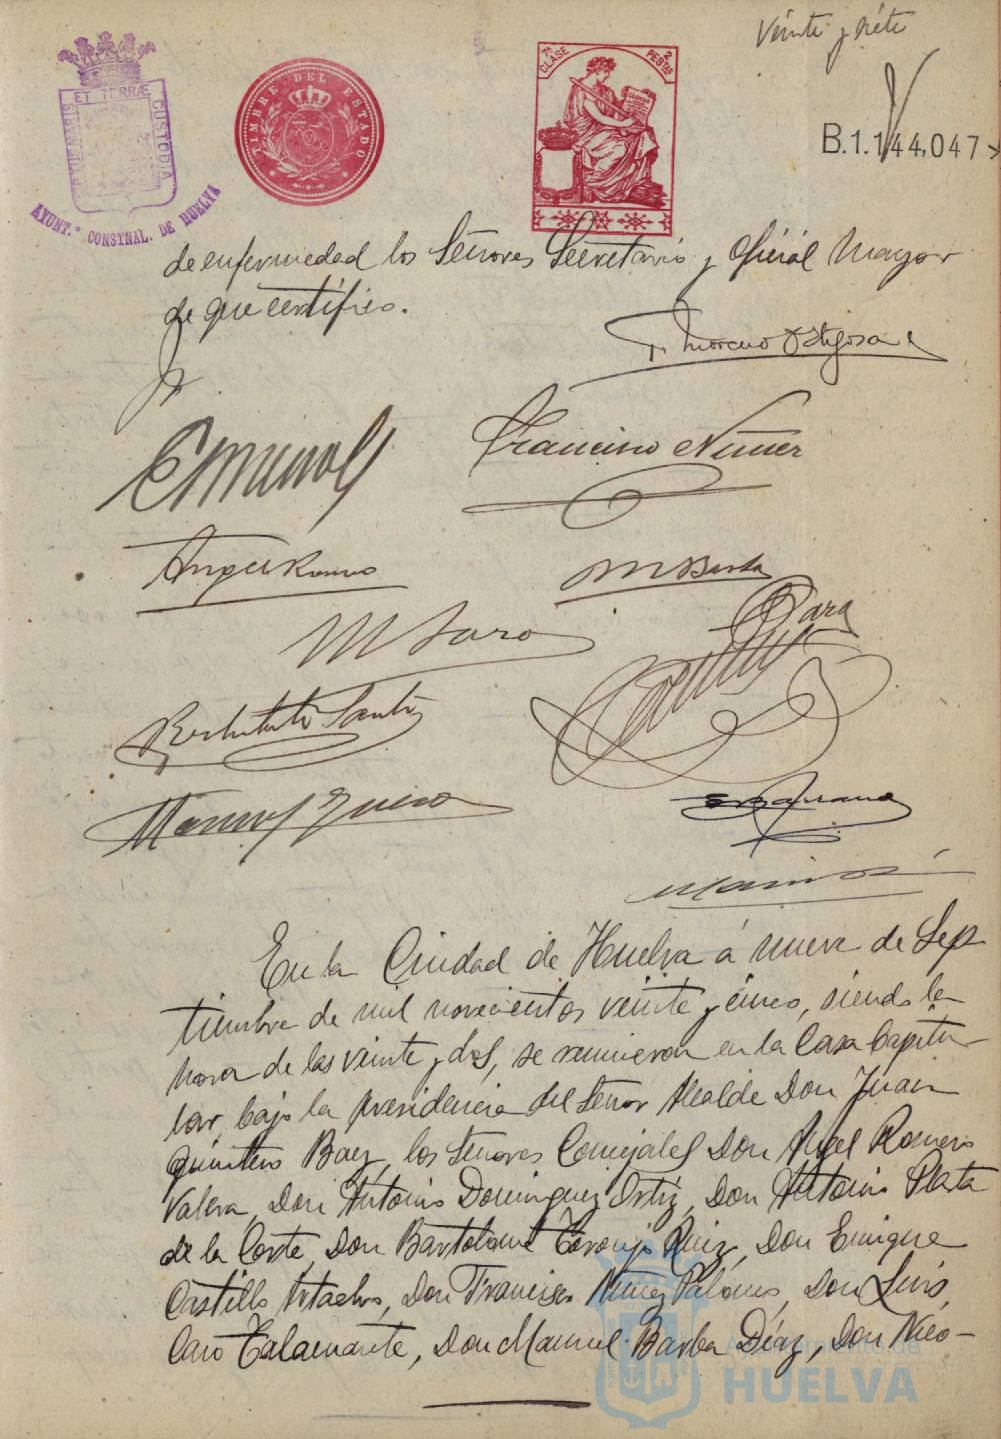 Veinte y siete
ET TERRÆ
CUSTODIA
AYUNT.º CONSTNAL. DE HUELVA
TIMBRE DEL ESTADO
7ª CLASE 2 PESTAS
B.1.144,047
de enfermedad los Señores Secretario y Oficial Mayor
de que certifico.
Francisco Nuñez
Angel Romero
M Barba
Manuel
En la Ciudad de Huelva á nueve de Sep
tiembre de mil novecientos veinte y cinco, siendo la
hora de las veinte y dos, se reunieron en la Casa Capitu-
lar, bajo la presidencia del Señor Alcalde Don Juan
Quintero Baez, los Señores Concejales Don Angel Romero
Valera, Don Antonio Dominguez Ortiz, Don Antonio Plata
de la Corte, Don Bartolomé Toronjo Ruiz, Don Enrique
Castillo, Don Francisco Nuñez Palomo, Don Luis
Caro Talamante, Don Manuel Barba Díaz, Don Nico-
Ayuntamiento de
HUELVA